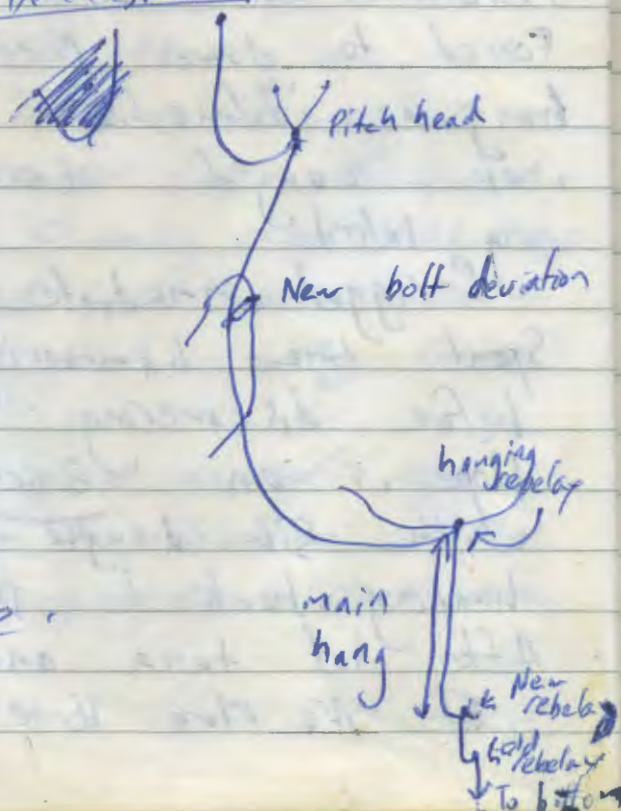 Pitch head
New bolt deviation
hanging
rebelay
main
hang
New
rebelay
old
rebelay
To bottom